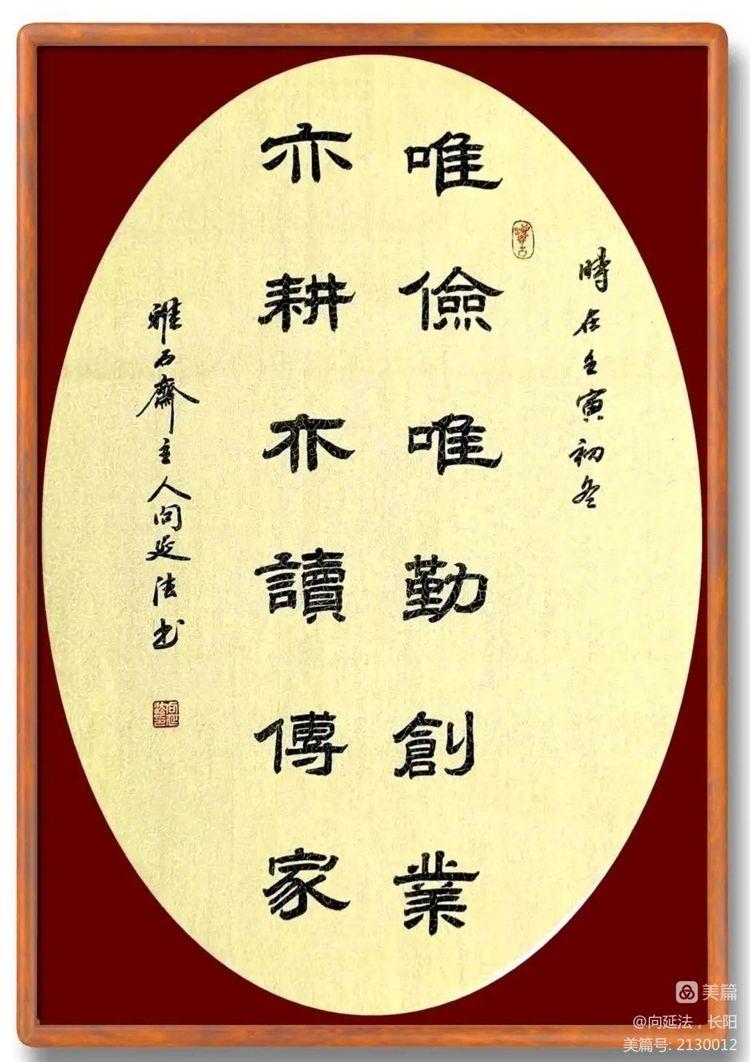 時在壬寅初冬
唯儉唯勤創業
亦耕亦讀傳家
雅石齋主人向延法书
美篇
@向延法，长阳
美篇号: 2130012